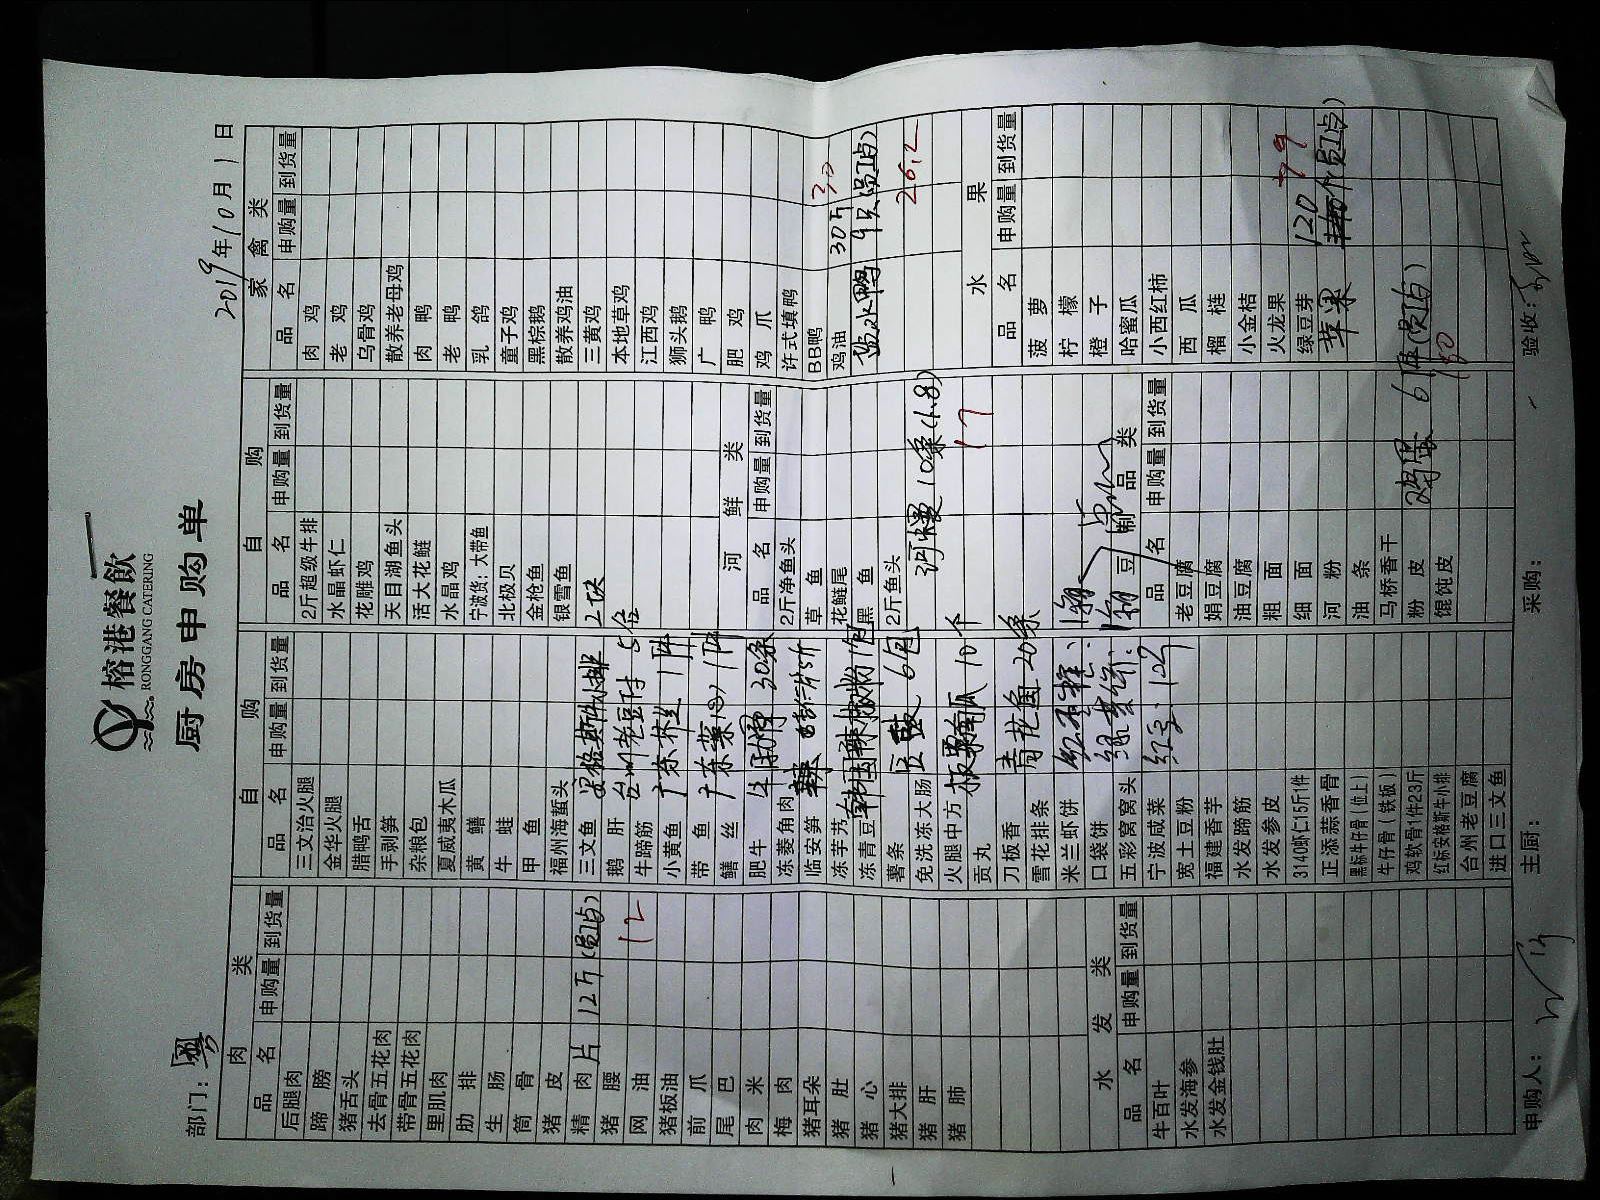 榕港餐飲
RONGGANG CATERING
厨房申购单
部门：粤
2019年10月1日
肉类
品名 申购量 到货量
后腿肉
蹄膀
猪舌头
去骨五花肉
带骨五花肉
里肌肉
肋排
生肠
筒骨
猪皮
精肉片 12斤(员工点)
猪腰
网油 12
猪板油
前爪
尾巴
肉米
梅肉
猪耳朵
猪肚
猪心
猪大排
猪肝
猪肺
水发类
品名 申购量 到货量
牛百叶
水发海参
水发金钱肚
自购
品名 申购量 到货量
三文治火腿
金华火腿
腊鸭舌
手剥笋
杂粮包
夏威夷木瓜
黄鳝
牛蛙
甲鱼
福州海蜇头
三文鱼 安格斯牛排 2块
鹅肝
牛蹄筋
小黄鱼
带鱼
鳝丝
肥牛 30条
冻菱角肉
临安笋
冻芋艿
冻青豆
薯条 豆豉 6包
免洗冻大肠
火腿中方 板栗南瓜 10个
贡丸
刀板香 青花鱼 20条
雪花排条
米兰虾饼
口袋饼
五彩窝窝头
宁波咸菜
宽土豆粉
福建香芋
水发蹄筋
水发参皮
3140虾仁15斤1件
正添蒜香骨
黑标牛仔骨(位上)
牛仔骨(铁板)
鸡软骨1件23斤
红标安格斯牛小排
台州老豆腐
进口三文鱼
自购
品名 申购量 到货量
2斤超级牛排
水晶虾仁
花雕鸡
天目湖鱼头
活大花鲢
水晶鸡
宁波货：大带鱼
北极贝
金枪鱼
银雪鱼
河鲜类
品名 申购量 到货量
2斤净鱼头
草鱼
花鲢尾
黑鱼
2斤鱼头
河鳗 10条(1.8)
17
豆制品类
品名 申购量 到货量
老豆腐
娟豆腐
油豆腐
粗面
细面
河粉
油条
马桥香干
粉皮 鸡蛋 6
馄饨皮 180
家禽类
品名 申购量 到货量
肉鸡
老鸡
乌骨鸡
散养老母鸡
肉鸭
老鸭
乳鸽
童子鸡
黑棕鹅
散养鸡油
三黄鸡
本地草鸡
江西鸡
狮头鹅
广鸭
肥鸡
鸡爪
许式填鸭
BB鸭
鸡油 30斤 30
盐水鸭 9只(员工点)
26.2
水果
品名 申购量 到货量
菠萝
柠檬
橙子
哈蜜瓜
小西红柿
西瓜
榴梿
小金桔
火龙果
绿豆芽 120 79
苹果 (员工点)
申购人：
主厨：
采购：
验收：